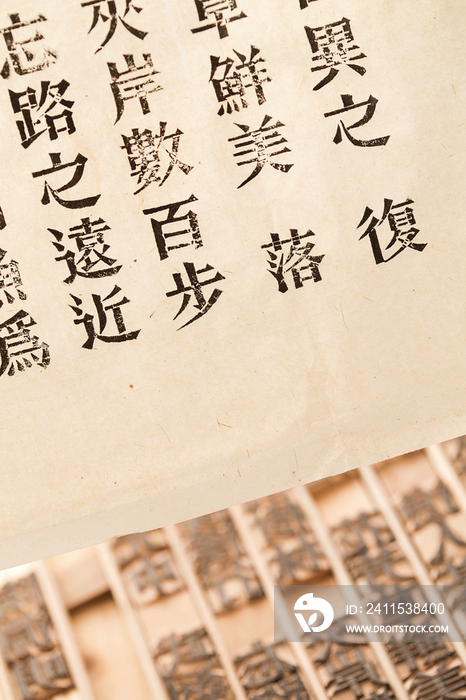 魚為
忘路之遠近
夾岸數百步
草鮮美 落
異之 復
ID: 2411538400
WWW.DROITSTOCK.COM